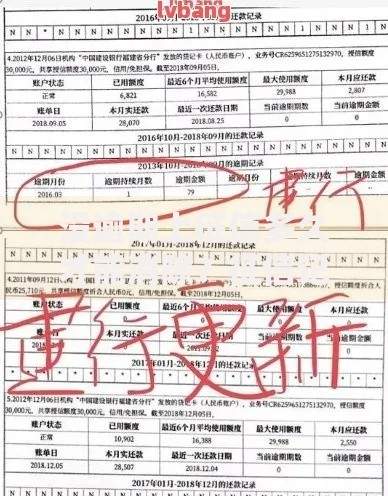 lvbang
2016年10月-2018年09月的还款记录
N N * N N N N N N N N N N N N N N N N N N N N N
4.2012年12月06日机构“中国建设银行福建省分行”发放的贷记卡(人民币账户),业务号CR6259651275132970,授信额度
30,000元,共享授信额度30,000元,信用/免担保。截至2018年09月05日,
账户状态 已用额度 最近6个月平均使用额度 最大使用额度 本月应还款
正常 6,821 16,582 29,988 2,807
账单日 本月实还款 最近一次还款日期 当前逾期期数 当前逾期金额
2018.09.05 28,070 2018.08.25 0 0
2016年10月-2018年09月的还款记录
N N N N N N N N N N N N N N N N N N N N N N N N
2013年10月-2016年09月的逾期记录
逾期月份 逾期持续月数 逾期金额
2016.03 1 79
建行
2017年01月-2018年12月的还款记录
4.2011年09月12日
账户状态 已用额度 最大使用额度 本月应还款
本月实还款 当前逾期金额
建行更新
2017年01月-2018年12月的还款记录
5.2012年12月06日机构“中国建设银行福建省分行”发放的贷记卡(人民币账户),业务号CR6259651275132970,授信额度
30,000元,共享授信额度30,000元,信用/免担保。截至2018年12月05日,
账户状态 已用额度 最近6个月平均使用额度 最大使用额度 本月应还款
正常 10,902 16,388 29,988 2,550
账单日 本月实还款 最近一次还款日期 当前逾期期数 当前逾期金额
2018.12.05 28,507 2018.12.04 0 0
2017年01月-2018年12月的还款记录